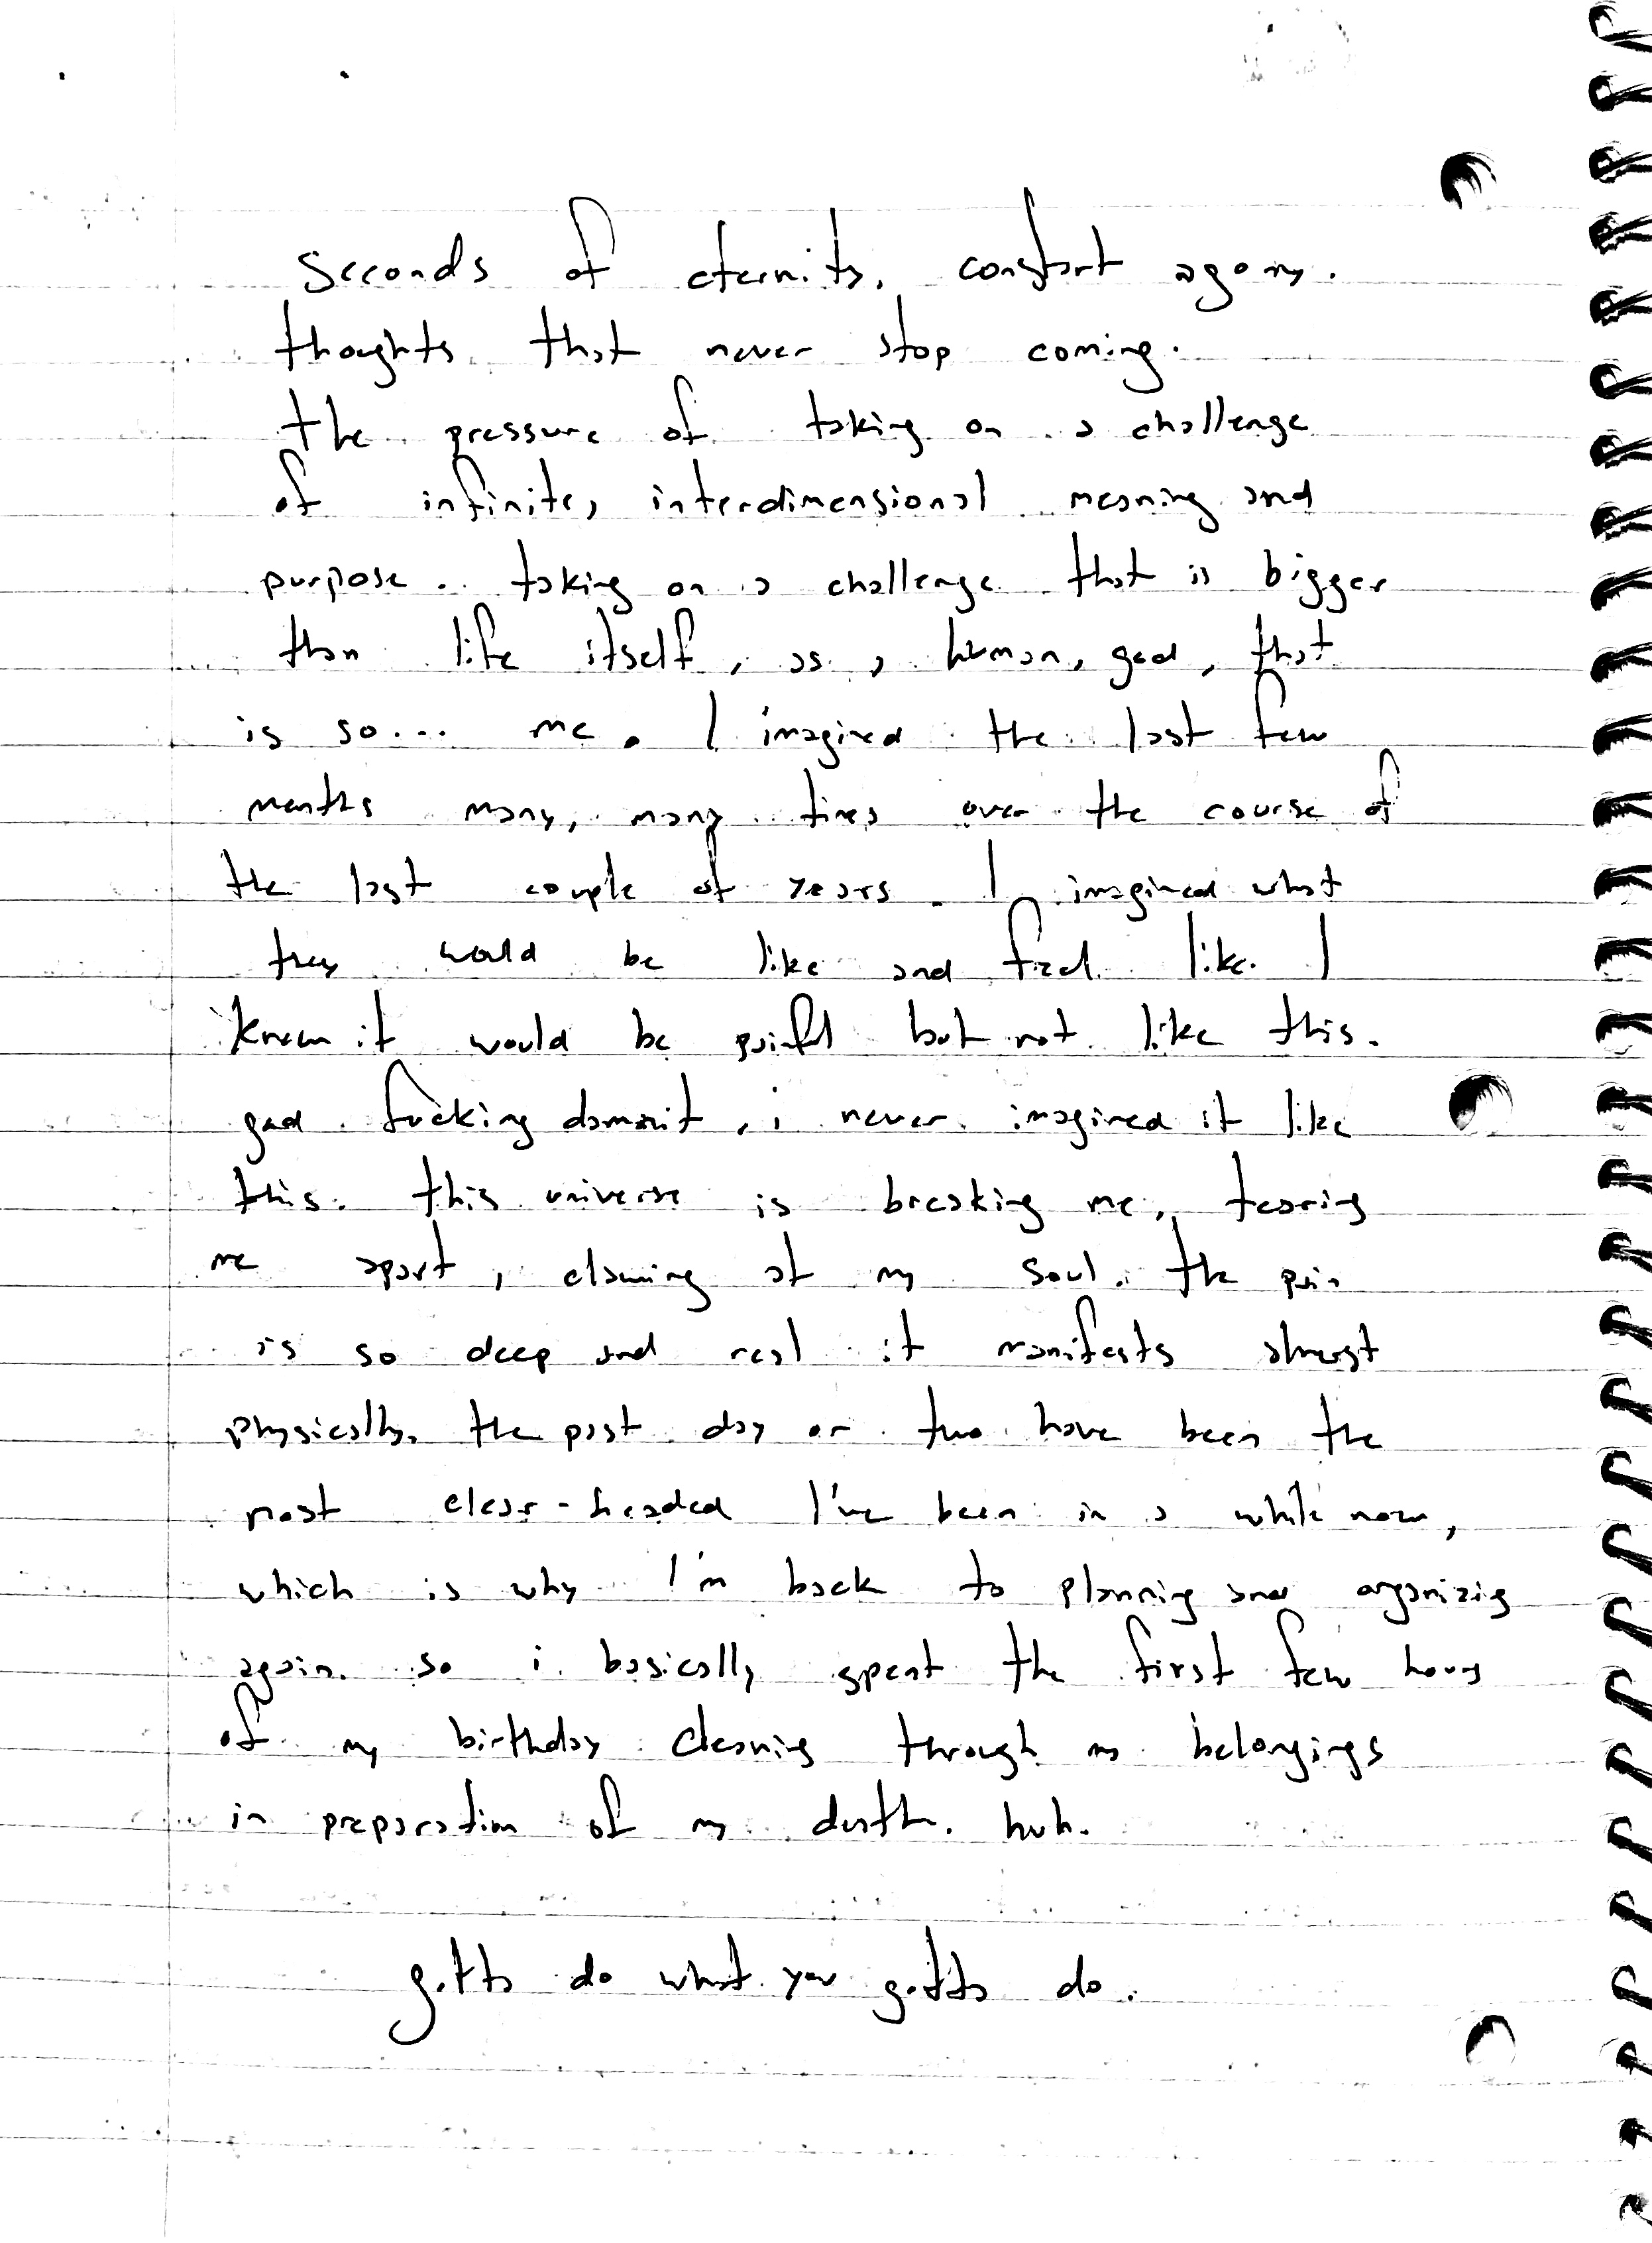 Seconds of eternity. constant agony.
thoughts that never stop coming.
the pressure of taking on a challenge
of infinite, interdimensional meaning and
purpose. taking on a challenge that is bigger
than life itself, as a human, god, that
is so... me. I imagined the last few
months many, many times over the course of
the last couple of years. I imagined what
they would be like and feel like. I
knew it would be painful but not like this.
god fucking damnit, i never imagined it like
this. this universe is breaking me, tearing
me apart, clawing at my soul. the pain
is so deep and real it manifests almost
physically. the past day or two have been the
most clear-headed I've been in a while now,
which is why I'm back to planning and organizing
again. so i basically spent the first few hours
of my birthday cleaning through my belongings
in preparation of my death. huh.
gotta do what you gotta do.